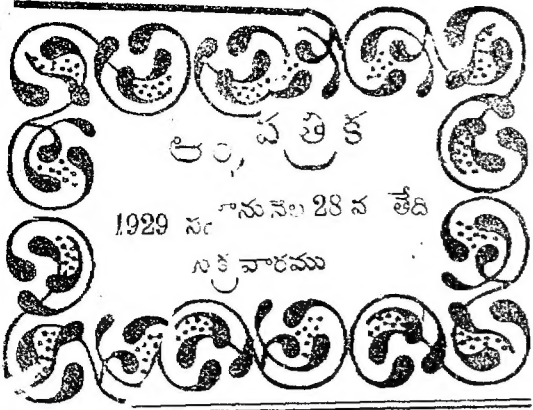 ఆంధ్ర పత్రిక
1929 సం జూను నెల 28 న తేది
శుక్రవారము